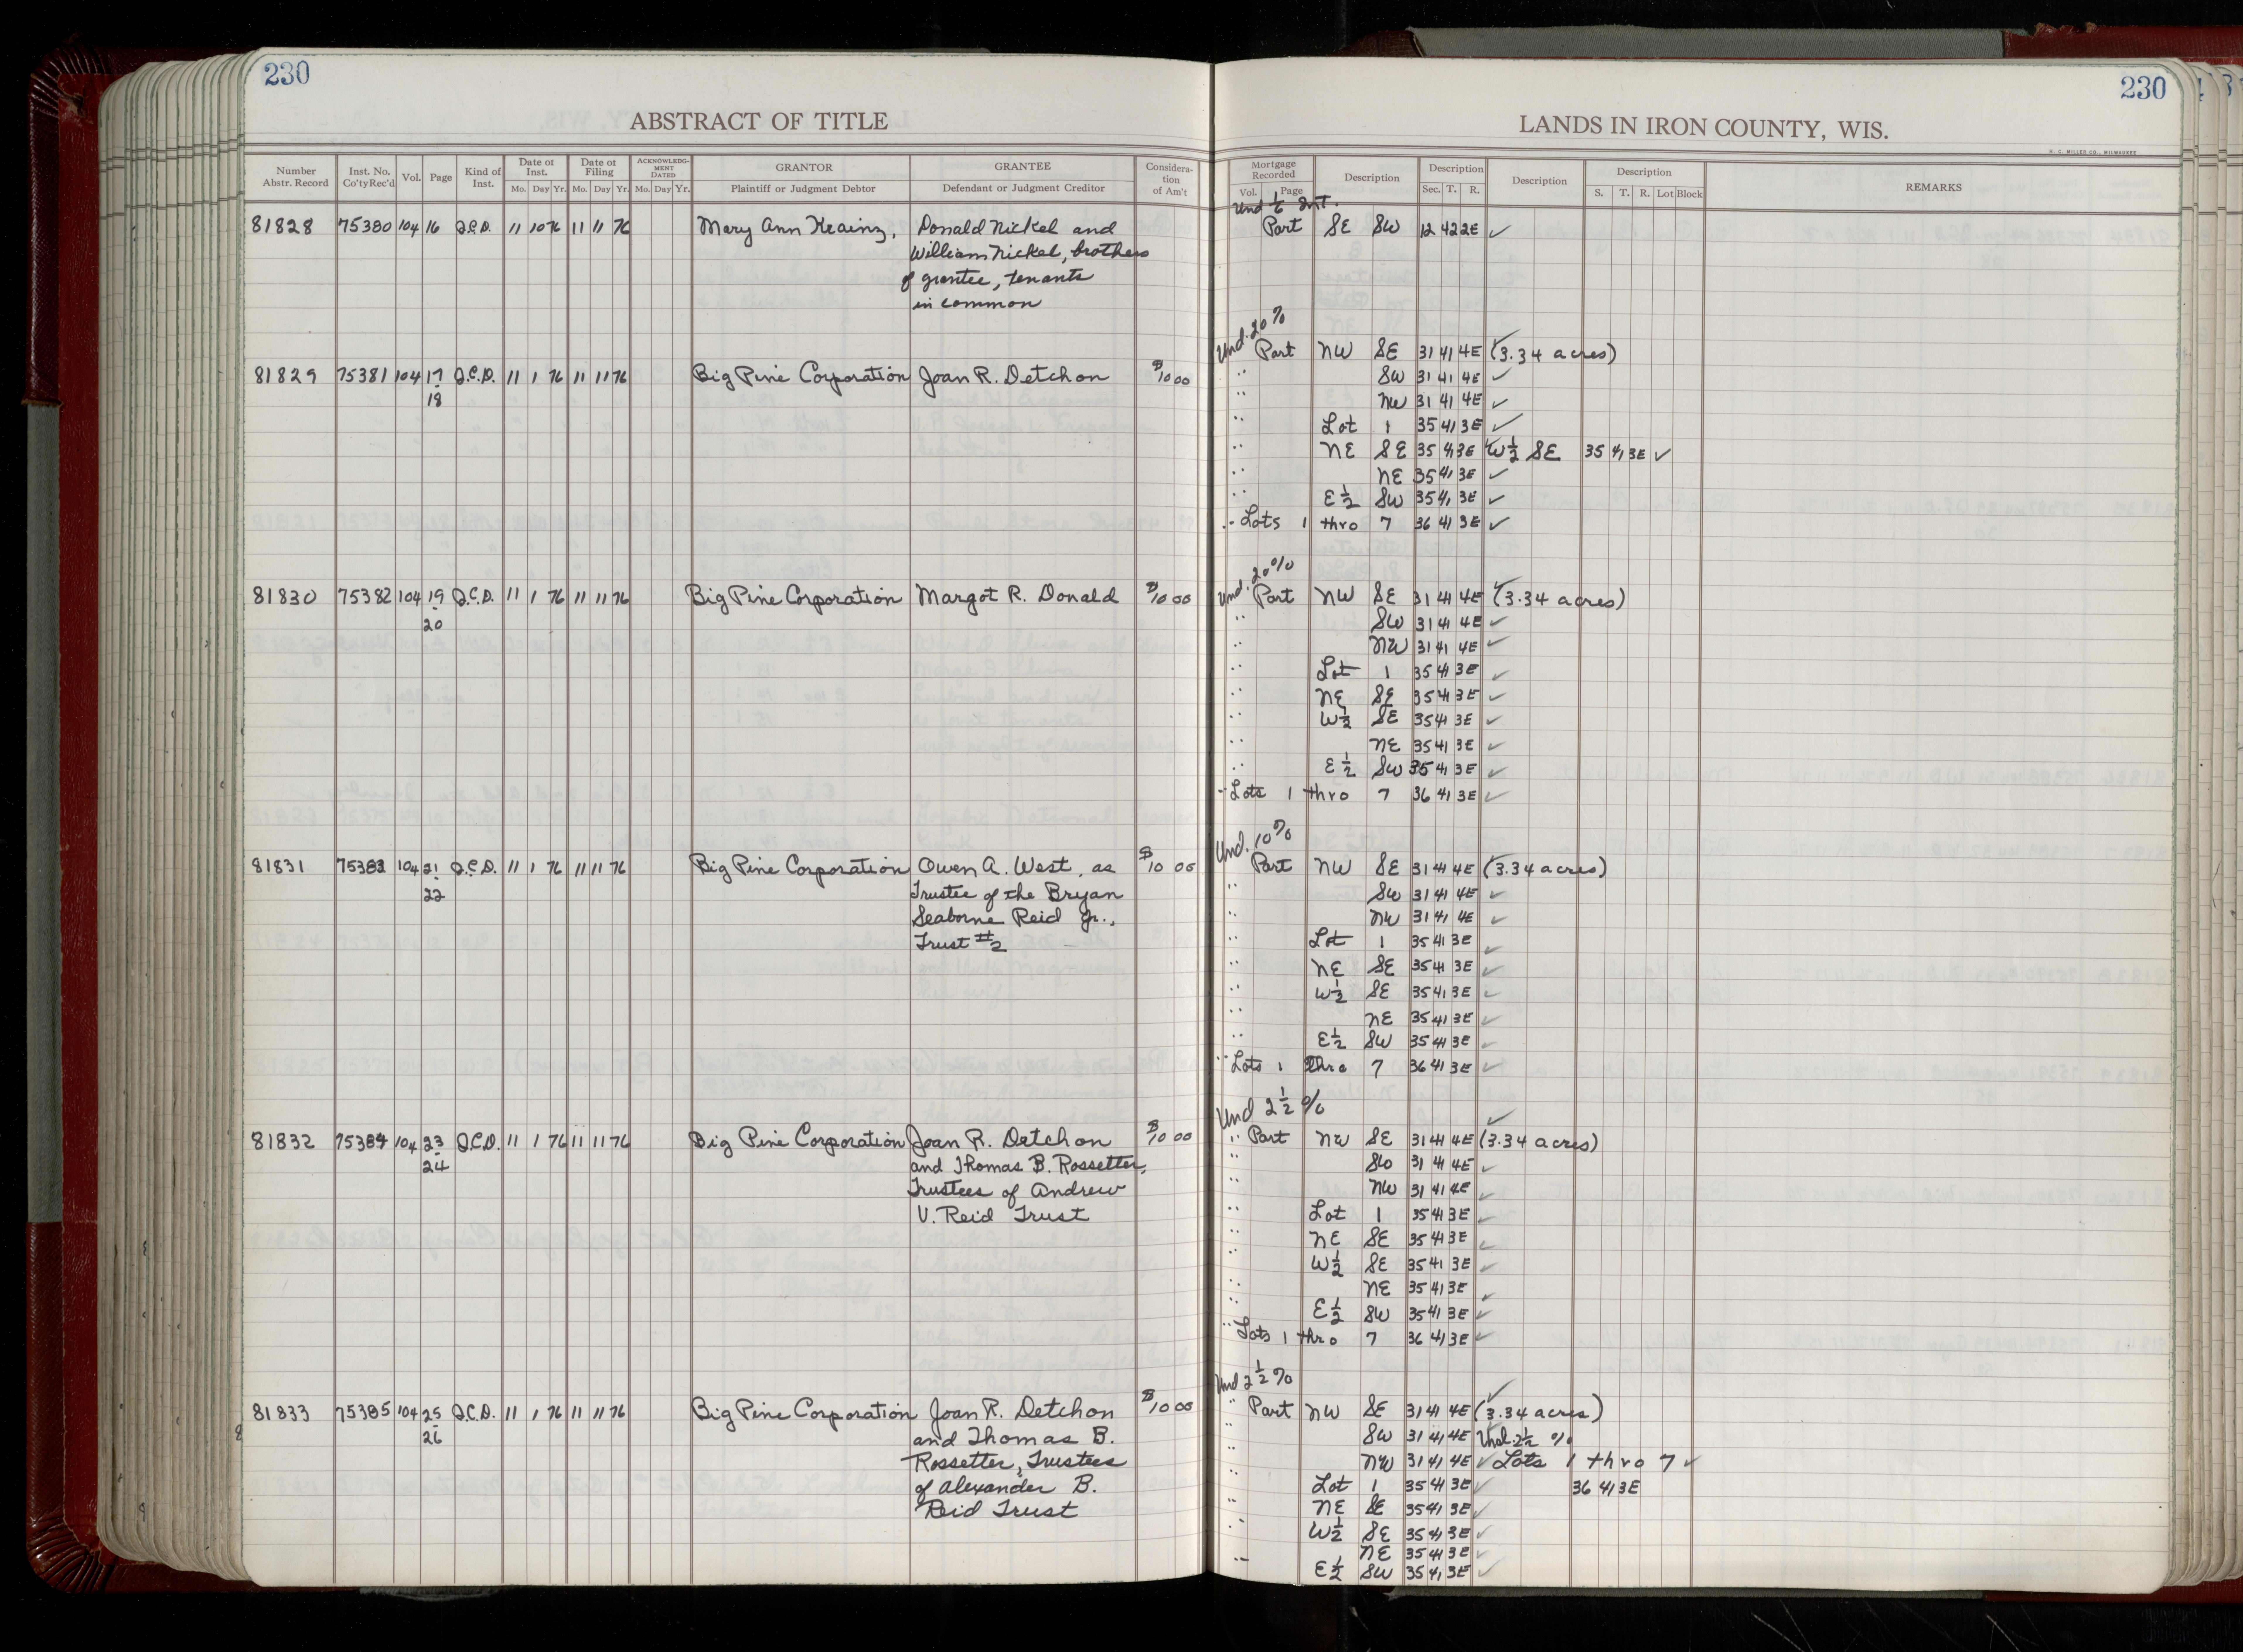 230
ABSTRACT OF TITLE
Number Abstr. Record | Inst. No. Co'ty Rec'd | Vol. | Page | Kind of Inst. | Date of Inst. Mo. Day Yr. | Date of Filing Mo. Day Yr. | ACKNOWLEDGMENT DATED Mo. Day Yr. | GRANTOR Plaintiff or Judgment Debtor | GRANTEE Defendant or Judgment Creditor | Consideration of Am't
81828 75380 104 16 Q.C.D. 11 10 76 11 11 76 Mary Ann Krainz, Donald Nickel and
William Nickel, brothers
of grantee, tenants
in common
81829 75381 104 17 Q.C.D. 11 1 76 11 11 76 Big Pine Corporation Joan R. Detchon $10 00
18
81830 75382 104 19 Q.C.D. 11 1 76 11 11 76 Big Pine Corporation Margot R. Donald $10 00
20
81831 75383 104 21 Q.C.D. 11 1 76 11 11 76 Big Pine Corporation Owen A. West, as $10 00
22 Trustee of the Bryan
Seaborne Reid Jr.,
Trust #2
81832 75384 104 23 Q.C.D. 11 1 76 11 11 76 Big Pine Corporation Joan R. Detchon $10 00
24 and Thomas B. Rossetter,
Trustees of Andrew
V. Reid Trust
81833 75385 104 25 Q.C.D. 11 1 76 11 11 76 Big Pine Corporation Joan R. Detchon $10 00
26 and Thomas B.
Rossetter, Trustees
of Alexander B.
Reid Trust
230
LANDS IN IRON COUNTY, WIS.
H. C. MILLER CO., MILWAUKEE
Mortgage Recorded Vol. Page | Description | Description Sec. T. R. | Description | Description S. T. R. Lot Block | REMARKS
Und 1/6 Int.
Part SE SW 12 42 2E ✓
Und. 20%
Part NW SE 31 41 4E (3.34 acres) ✓
" SW 31 41 4E ✓
" NW 31 41 4E ✓
" Lot 1 35 41 3E ✓
" NE SE 35 41 3E W½ SE 35 41 3E ✓
" NE 35 41 3E ✓
" E½ SW 35 41 3E ✓
" Lots 1 thro 7 36 41 3E ✓
Und. 20%
Part NW SE 31 41 4E (3.34 acres) ✓
" SW 31 41 4E ✓
" NW 31 41 4E ✓
" Lot 1 35 41 3E ✓
" NE SE 35 41 3E ✓
" W½ SE 35 41 3E ✓
" NE 35 41 3E ✓
" E½ SW 35 41 3E ✓
" Lots 1 thro 7 36 41 3E ✓
Und. 10%
Part NW SE 31 41 4E (3.34 acres) ✓
" SW 31 41 4E ✓
" NW 31 41 4E ✓
" Lot 1 35 41 3E ✓
" NE SE 35 41 3E ✓
" W½ SE 35 41 3E ✓
" NE 35 41 3E ✓
" E½ SW 35 41 3E ✓
" Lots 1 thro 7 36 41 3E ✓
Und 2½ %
" Part NW SE 31 41 4E (3.34 acres) ✓
" SW 31 41 4E ✓
" NW 31 41 4E ✓
" Lot 1 35 41 3E ✓
" NE SE 35 41 3E ✓
" W½ SE 35 41 3E ✓
" NE 35 41 3E ✓
" E½ SW 35 41 3E ✓
" Lots 1 thro 7 36 41 3E ✓
Und 2½ %
" Part NW SE 31 41 4E (3.34 acres) ✓
" SW 31 41 4E Und. 2½ %
" NW 31 41 4E ✓ Lots 1 thro 7 ✓
" Lot 1 35 41 3E ✓ 36 41 3E
" NE SE 35 41 3E ✓
" W½ SE 35 41 3E ✓
NE 35 41 3E ✓
" E½ SW 35 41 3E ✓